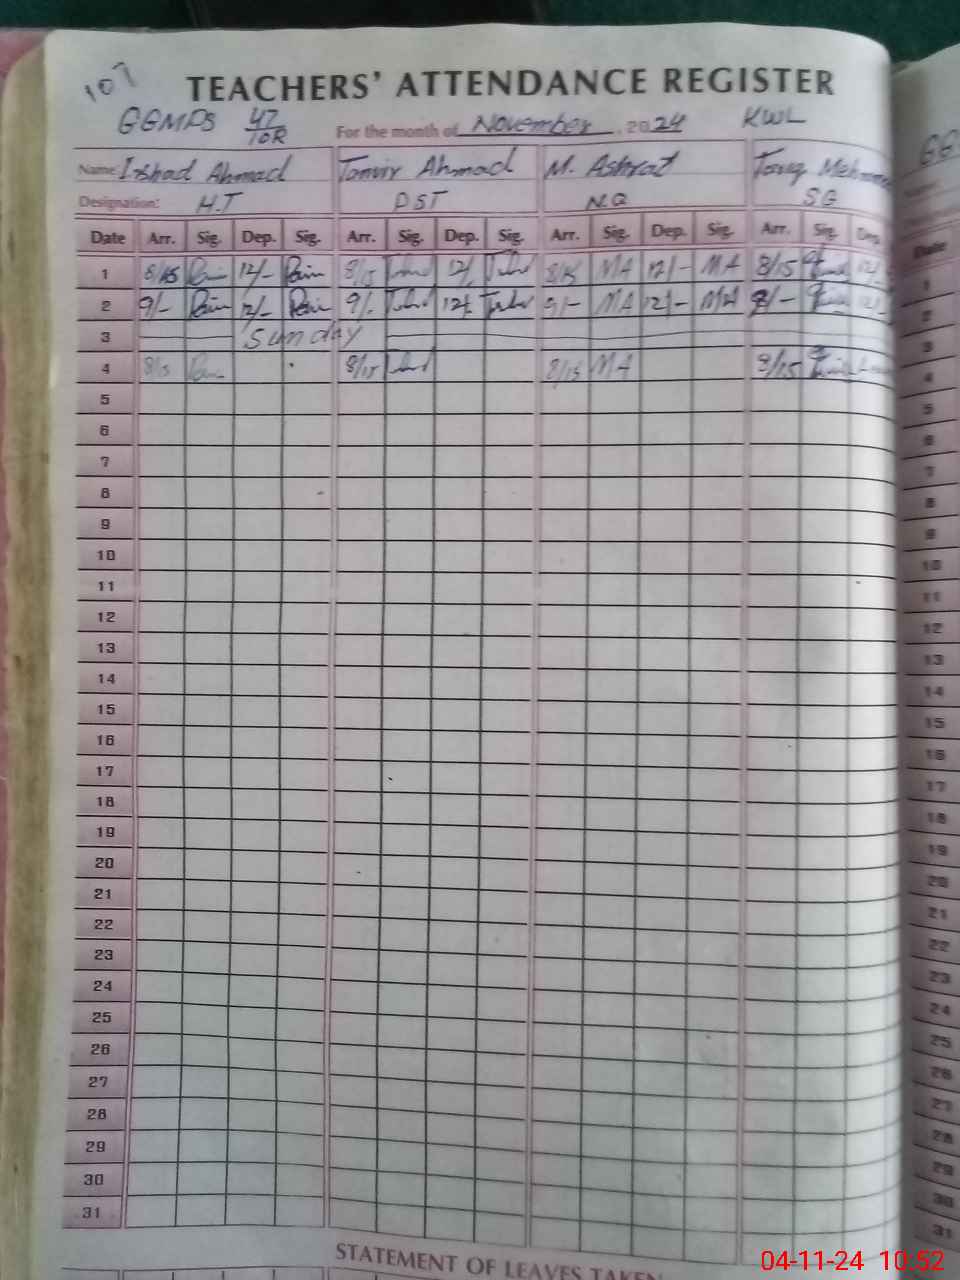 107
TEACHERS' ATTENDANCE REGISTER
GGMPS 47/10R For the month of November, 2024 KWL
Name: Irshad Ahmad Tanvir Ahmad M. Ashraf Tariq Mehmood
Designation: H.T PST N.Q SG
Date Arr. Sig. Dep. Sig. Arr. Sig. Dep. Sig. Arr. Sig. Dep. Sig. Arr. Sig. Dep.
1 8/15 12/- 8/15 12/- 8/15 MA 12/- MA 8/15 12/-
2 9/- 12/- 9/- 12/- 9/- MA 12/- MA 9/- 12/-
3 Sunday
4 8/15 8/15 8/15 MA 8/15
5
6
7
8
9
10
11
12
13
14
15
16
17
18
19
20
21
22
23
24
25
26
27
28
29
30
31
STATEMENT OF LEAVES TAKEN
04-11-24 10:52